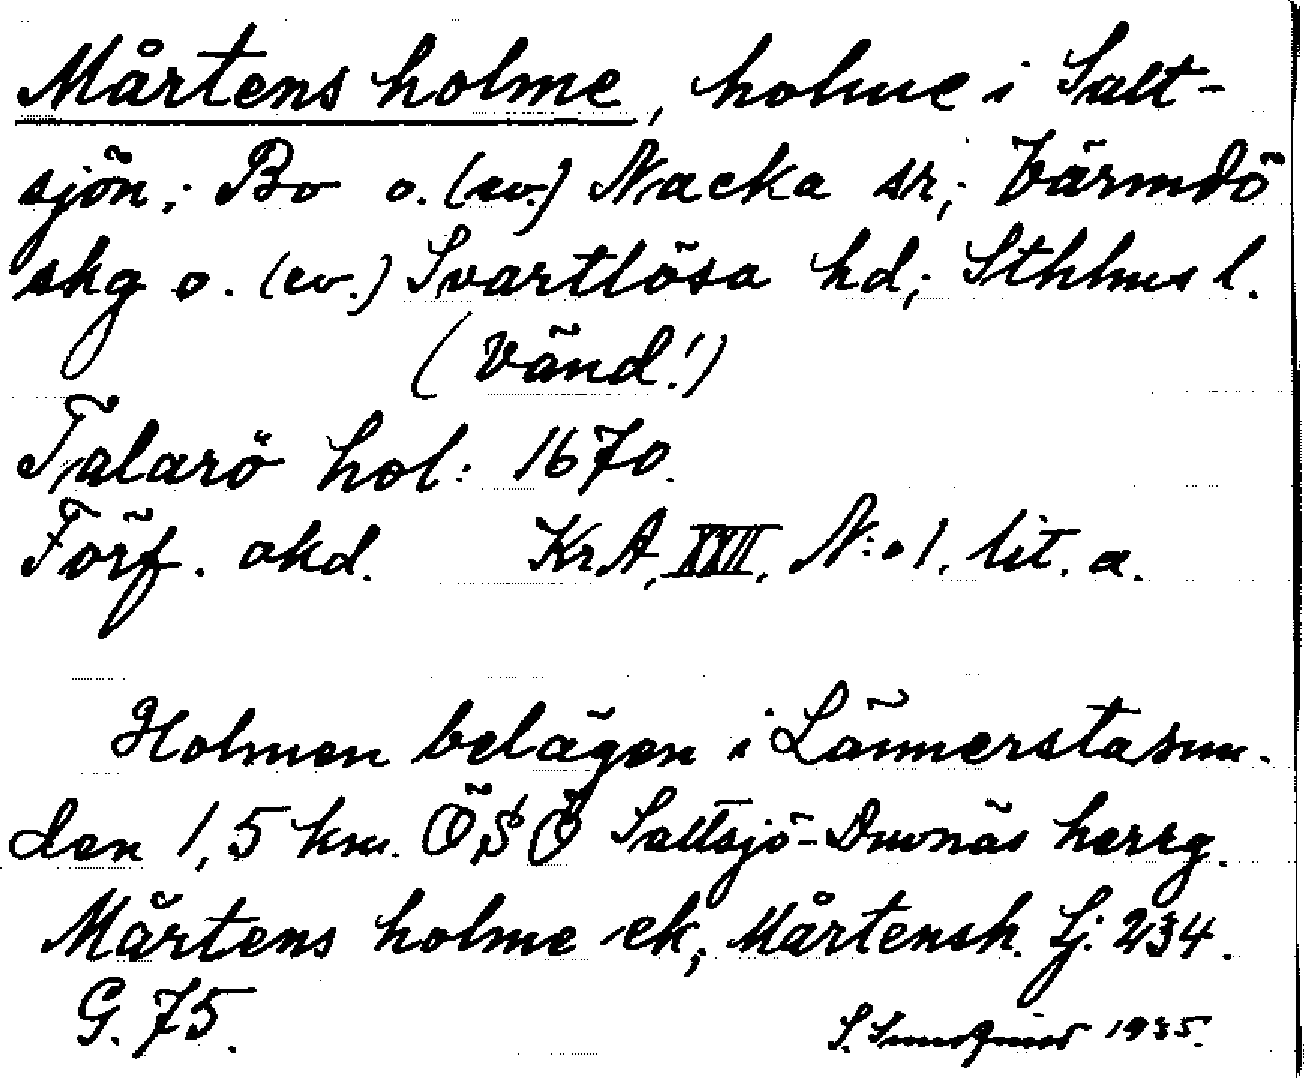 Mårtens holme, holme i Salt-
sjön; Bo o. (ev.) Nacka sn; Värmdö
skg o. (ev.) Svartlösa hd; Sthlms l.
(Vänd!)
Talarö hol: 1670.
Förf. okd. KrA, XXII, N:o 1. lit. a.
Holmen belägen i Lännerstasun-
den 1,5 km. ÖSÖ Saltsjö-Duvnäs herrg.
Mårtens holme ek; Mårtensh. Lj: 234.
G. 75.
S. 1935.